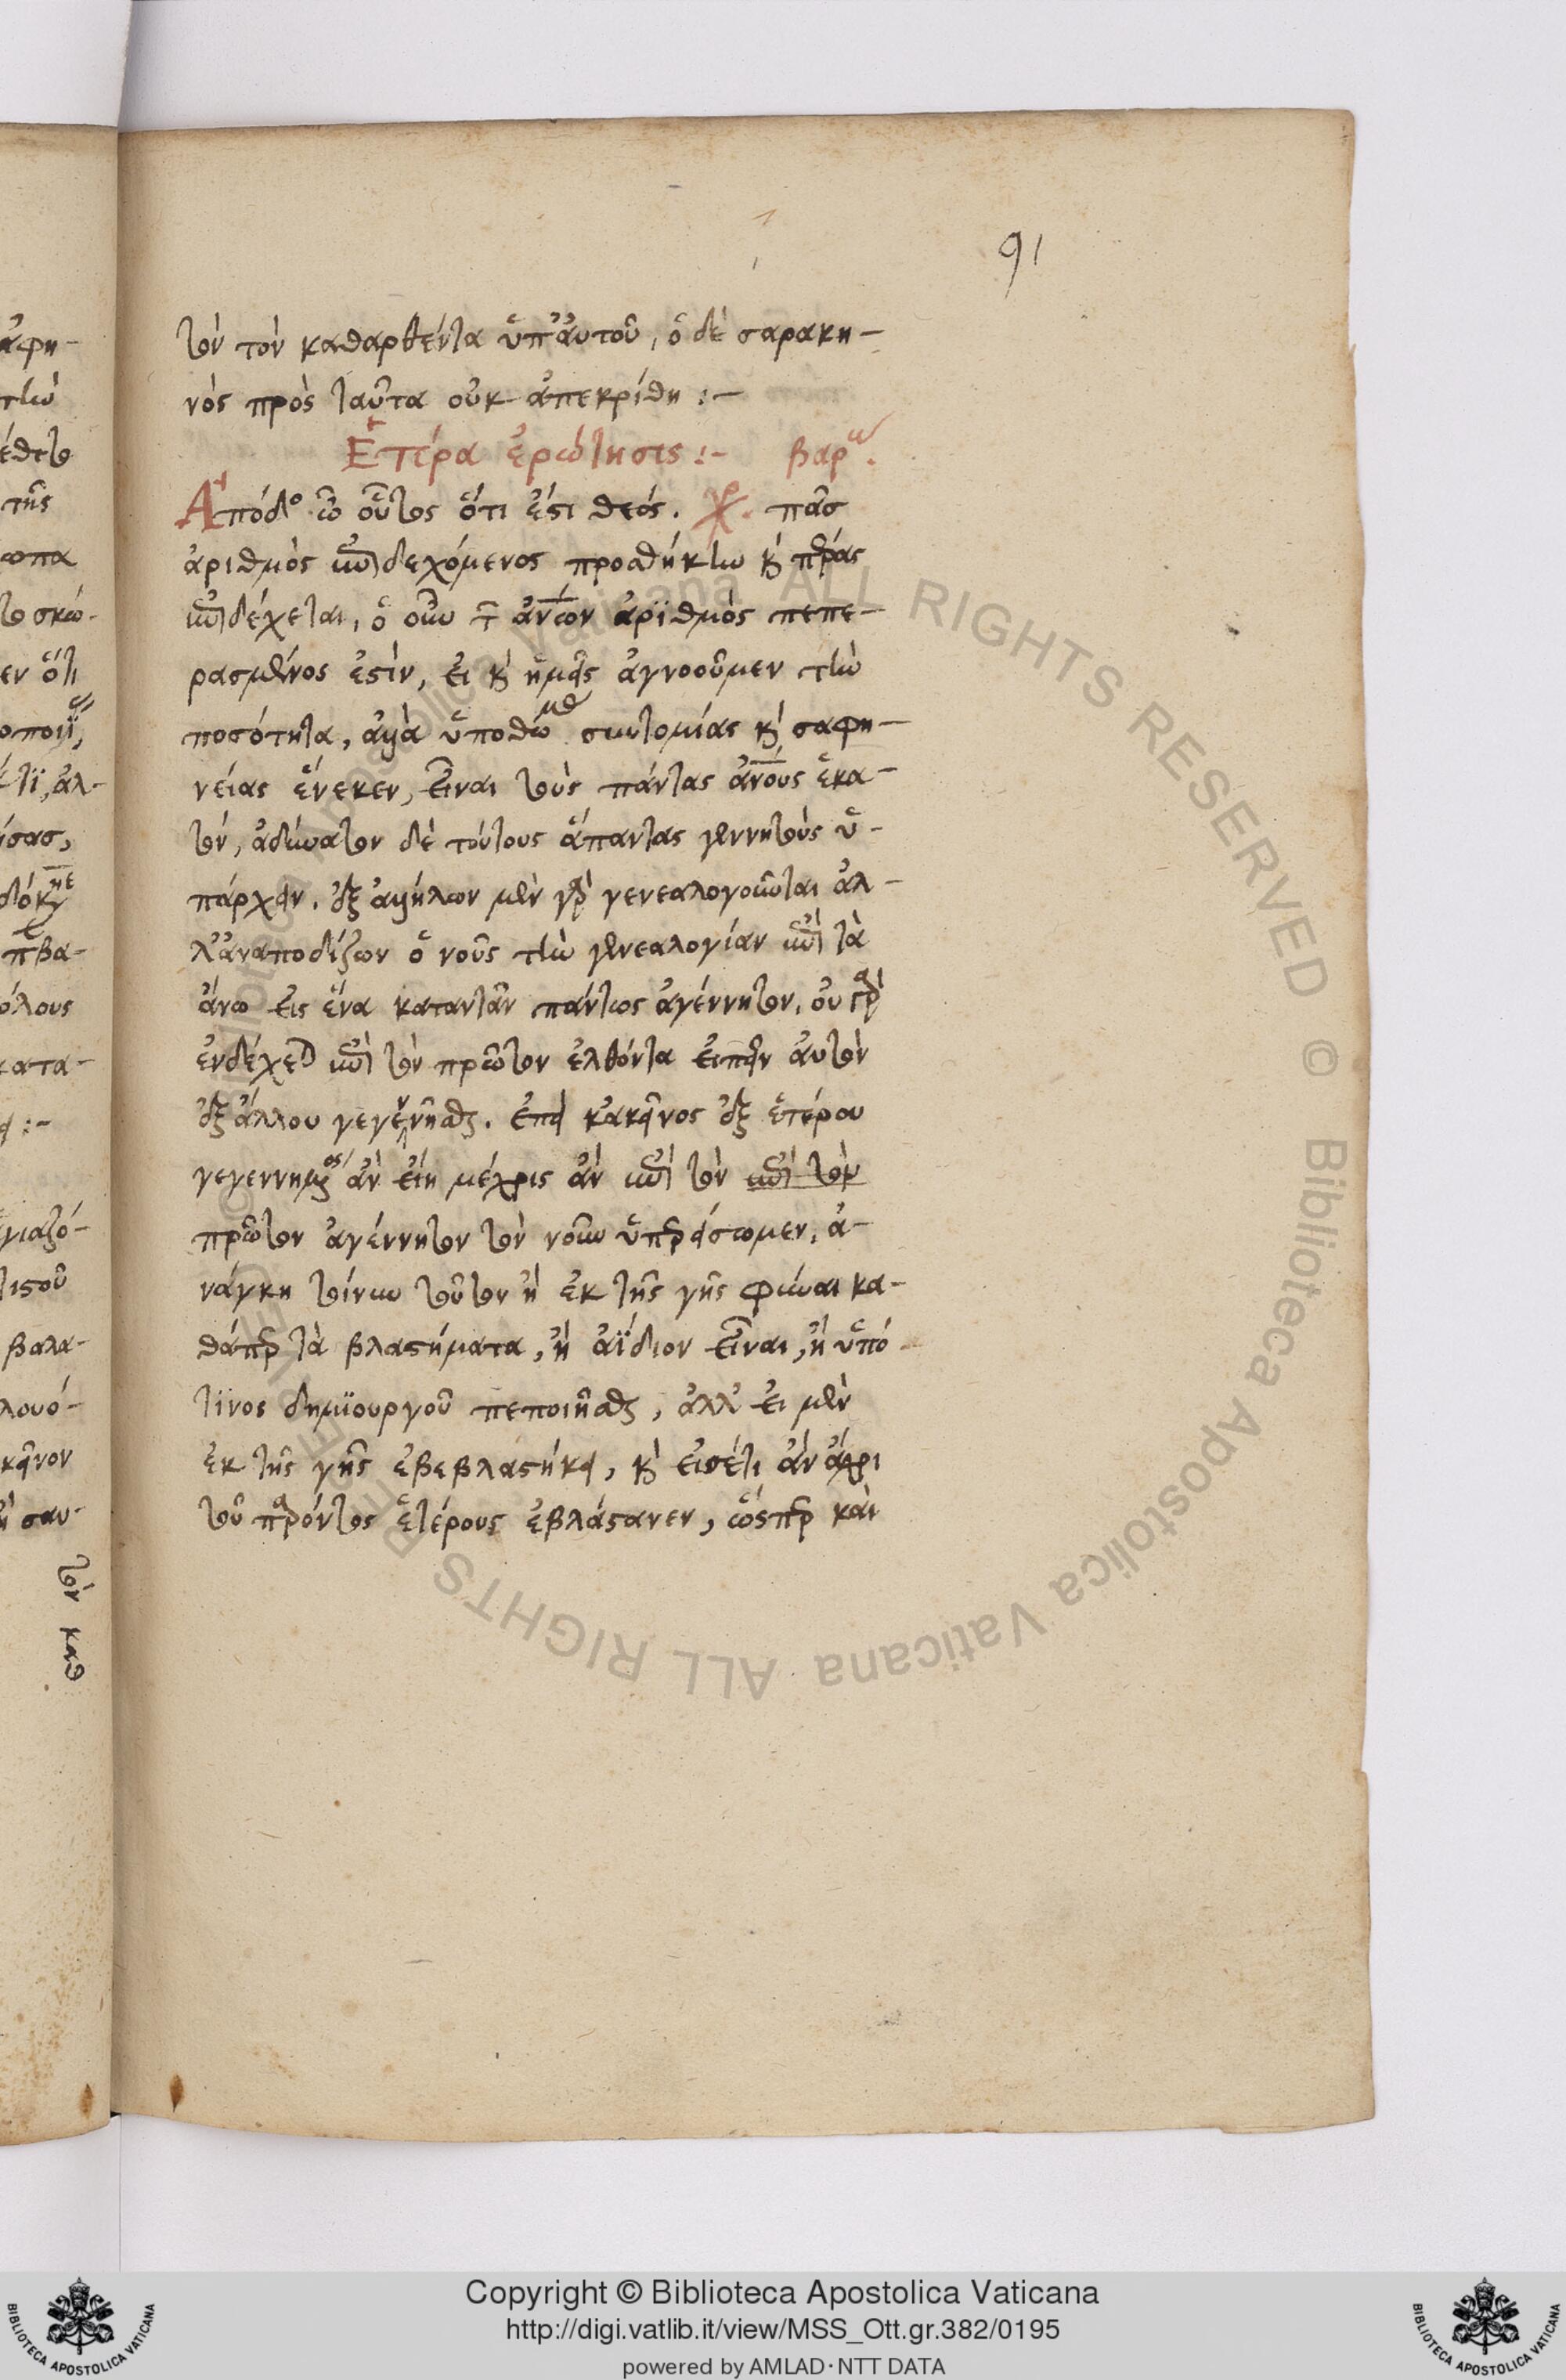 91
τὸν τὸν καθαρθέντα ὑπ' αὐτοῦ, ὁ δὲ σαρακη-
νὸς πρὸς ταῦτα οὐκ ἀπεκρίθη :-
Ἑτέρα ἐρώτησις :- βαρ
Ἀπόδ ὄντως ὅτι ἐστι θεός. πᾶσ
ἀριθμὸς ἐπιδεχόμενος προσθήκην κ πέρας
ἐπιδέχεται, ὁ οὖν τ ἀνων ἀρϊθμὸς πεπε-
ρασμένος ἐστὶν, εἰ κ ἡμεῖς ἀγνοοῦμεν τὴν
ποσότητα, ἀλλὰ ὑποθώμεθα συντομίας κ σαφη-
νείας ἕνεκεν, εἶναι τοὺς πάντας ἀνους ἑκα-
τόν, ἀδύνατον δὲ τούτους ἅπαντας γεννητοὺς ὑ-
πάρχειν. ἐξ ἀλλήλων μὲν γὰρ γενεαλογοῦνται ἀλ-
λ' ἀναποδίζων ὁ νοῦς τὴν γενεαλογίαν ἐπὶ τὰ
ἄνω εἰς ἕνα καταντᾶν πάντως ἀγέννητον. οὐ γὰρ
ἐνδέχεται ἐπὶ τὸν πρῶτον ἐλθόντα εἰπεῖν αὐτὸν
ἐξ ἄλλου γεγεννῆσθαι. ἐπεὶ κἀκεῖνος ἐξ ἑτέρου
γεγεννημένος ἂν εἴη μέχρις ἂν ἐπὶ τὸν ἐπὶ τὸν
πρῶτον ἀγέννητον τὸν νοῦν ὑπερείσωμεν, ἀ-
νάγκη τοίνυν τοῦτον ἢ ἐκ τῆς γῆς φυῦναι κα-
θάπερ τὰ βλαστήματα, ἢ ἀΐδιον εἶναι, ἢ ὑπό
τινος δημϊουργοῦ πεποιῆσθαι, ἀλλ' εἰ μὲν
ἐκ τῆς γῆς ἐβεβλαστήκει, κ εἰσέτι ἂν ἄχρι
τοῦ παρόντος ἑτέρους ἐβλάστανεν, ὥσπερ καὶ
Copyright © Biblioteca Apostolica Vaticana
http://digi.vatlib.it/view/MSS_Ott.gr.382/0195
powered by AMLAD·NTT DATA